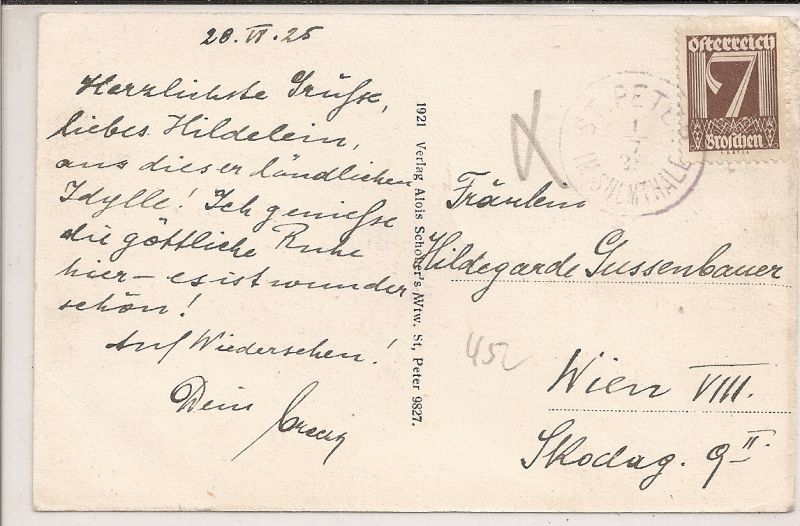 28. VI. 25
Herzlichste Grüße,
liebes Hildelein,
aus dieser ländlichen
Idylle! Ich genieße
die göttliche Ruhe
hier – es ist wunder
schön!
Auf Wiedersehen!
Dein
1921 Verlag Alois Schober's Wtw. St, Peter 9827.
Österreich
7
Groschen
ST. PETER
1
7
IM SULMTHALE
Fräulein
Hildegarde Gussenbauer
452
Wien VIII.
Skodag. 9 II